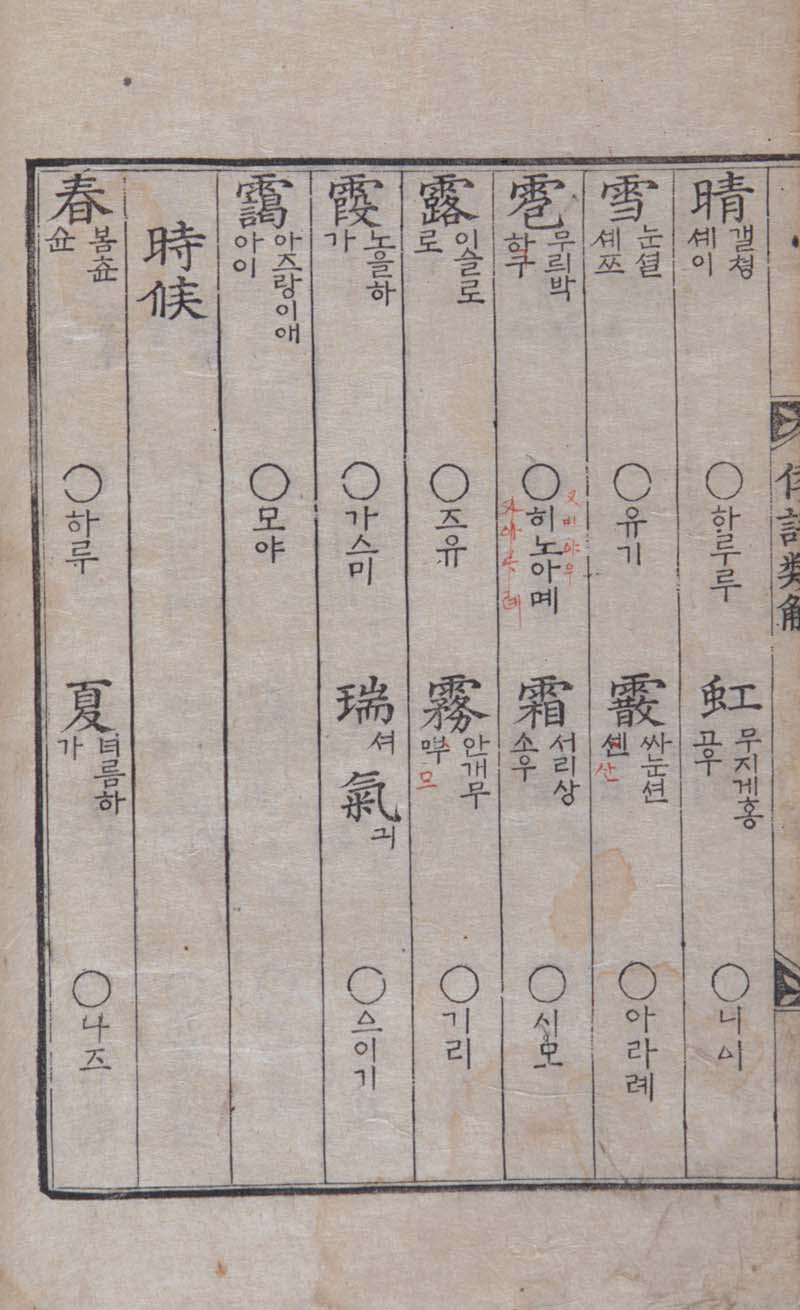 倭語類解
晴 갤쳥 셰이 ○할루루 虹 무지게홍 고우 ○니ᅀᅵ
雪 눈셜 셰쯔 ○유기 霰 싸눈션 셴 산 ○아라례
雹 무릐박 하구 ○히노아몌 霜 서리상 소우 ○시모
露 이슬로 로 ○즈유 霧 안개무 모 ○기리
霞 노을하 가 ○가스미 瑞 셔 氣 긔 ○ᅀᅳ이기
靄 아즈랑이애 아이 ○모야
時候
春 봄츈 슌 ○하루 夏 녀름하 가 ○나즈